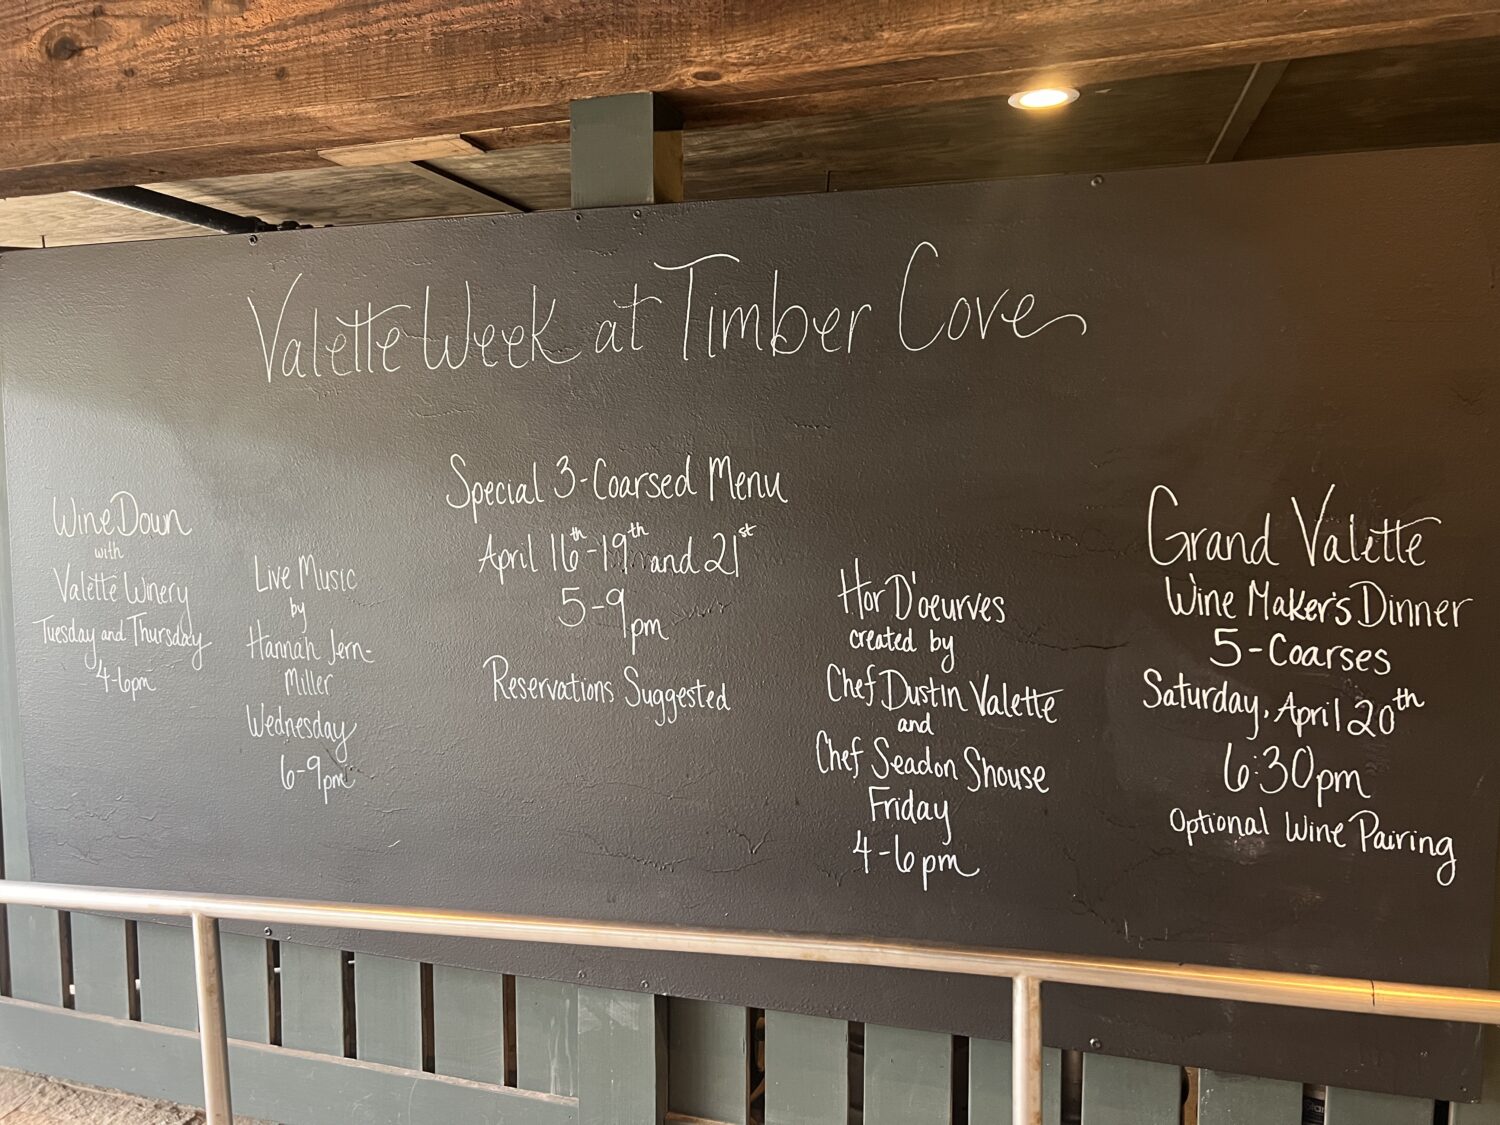 Valette Week at Timber Cove
Wine Down
with
Valette Winery
Tuesday and Thursday
4-6pm
Live Music
by
Hannah Jern-
Miller
Wednesday
6-9pm
Special 3-Coarsed Menu
April 16th-19th and 21st
5-9pm
Reservations Suggested
Hor D'oeurves
created by
Chef Dustin Valette
and
Chef Seadon Shouse
Friday
4-6pm
Grand Valette
Wine Maker's Dinner
5-Coarses
Saturday, April 20th
6:30pm
Optional Wine Pairing